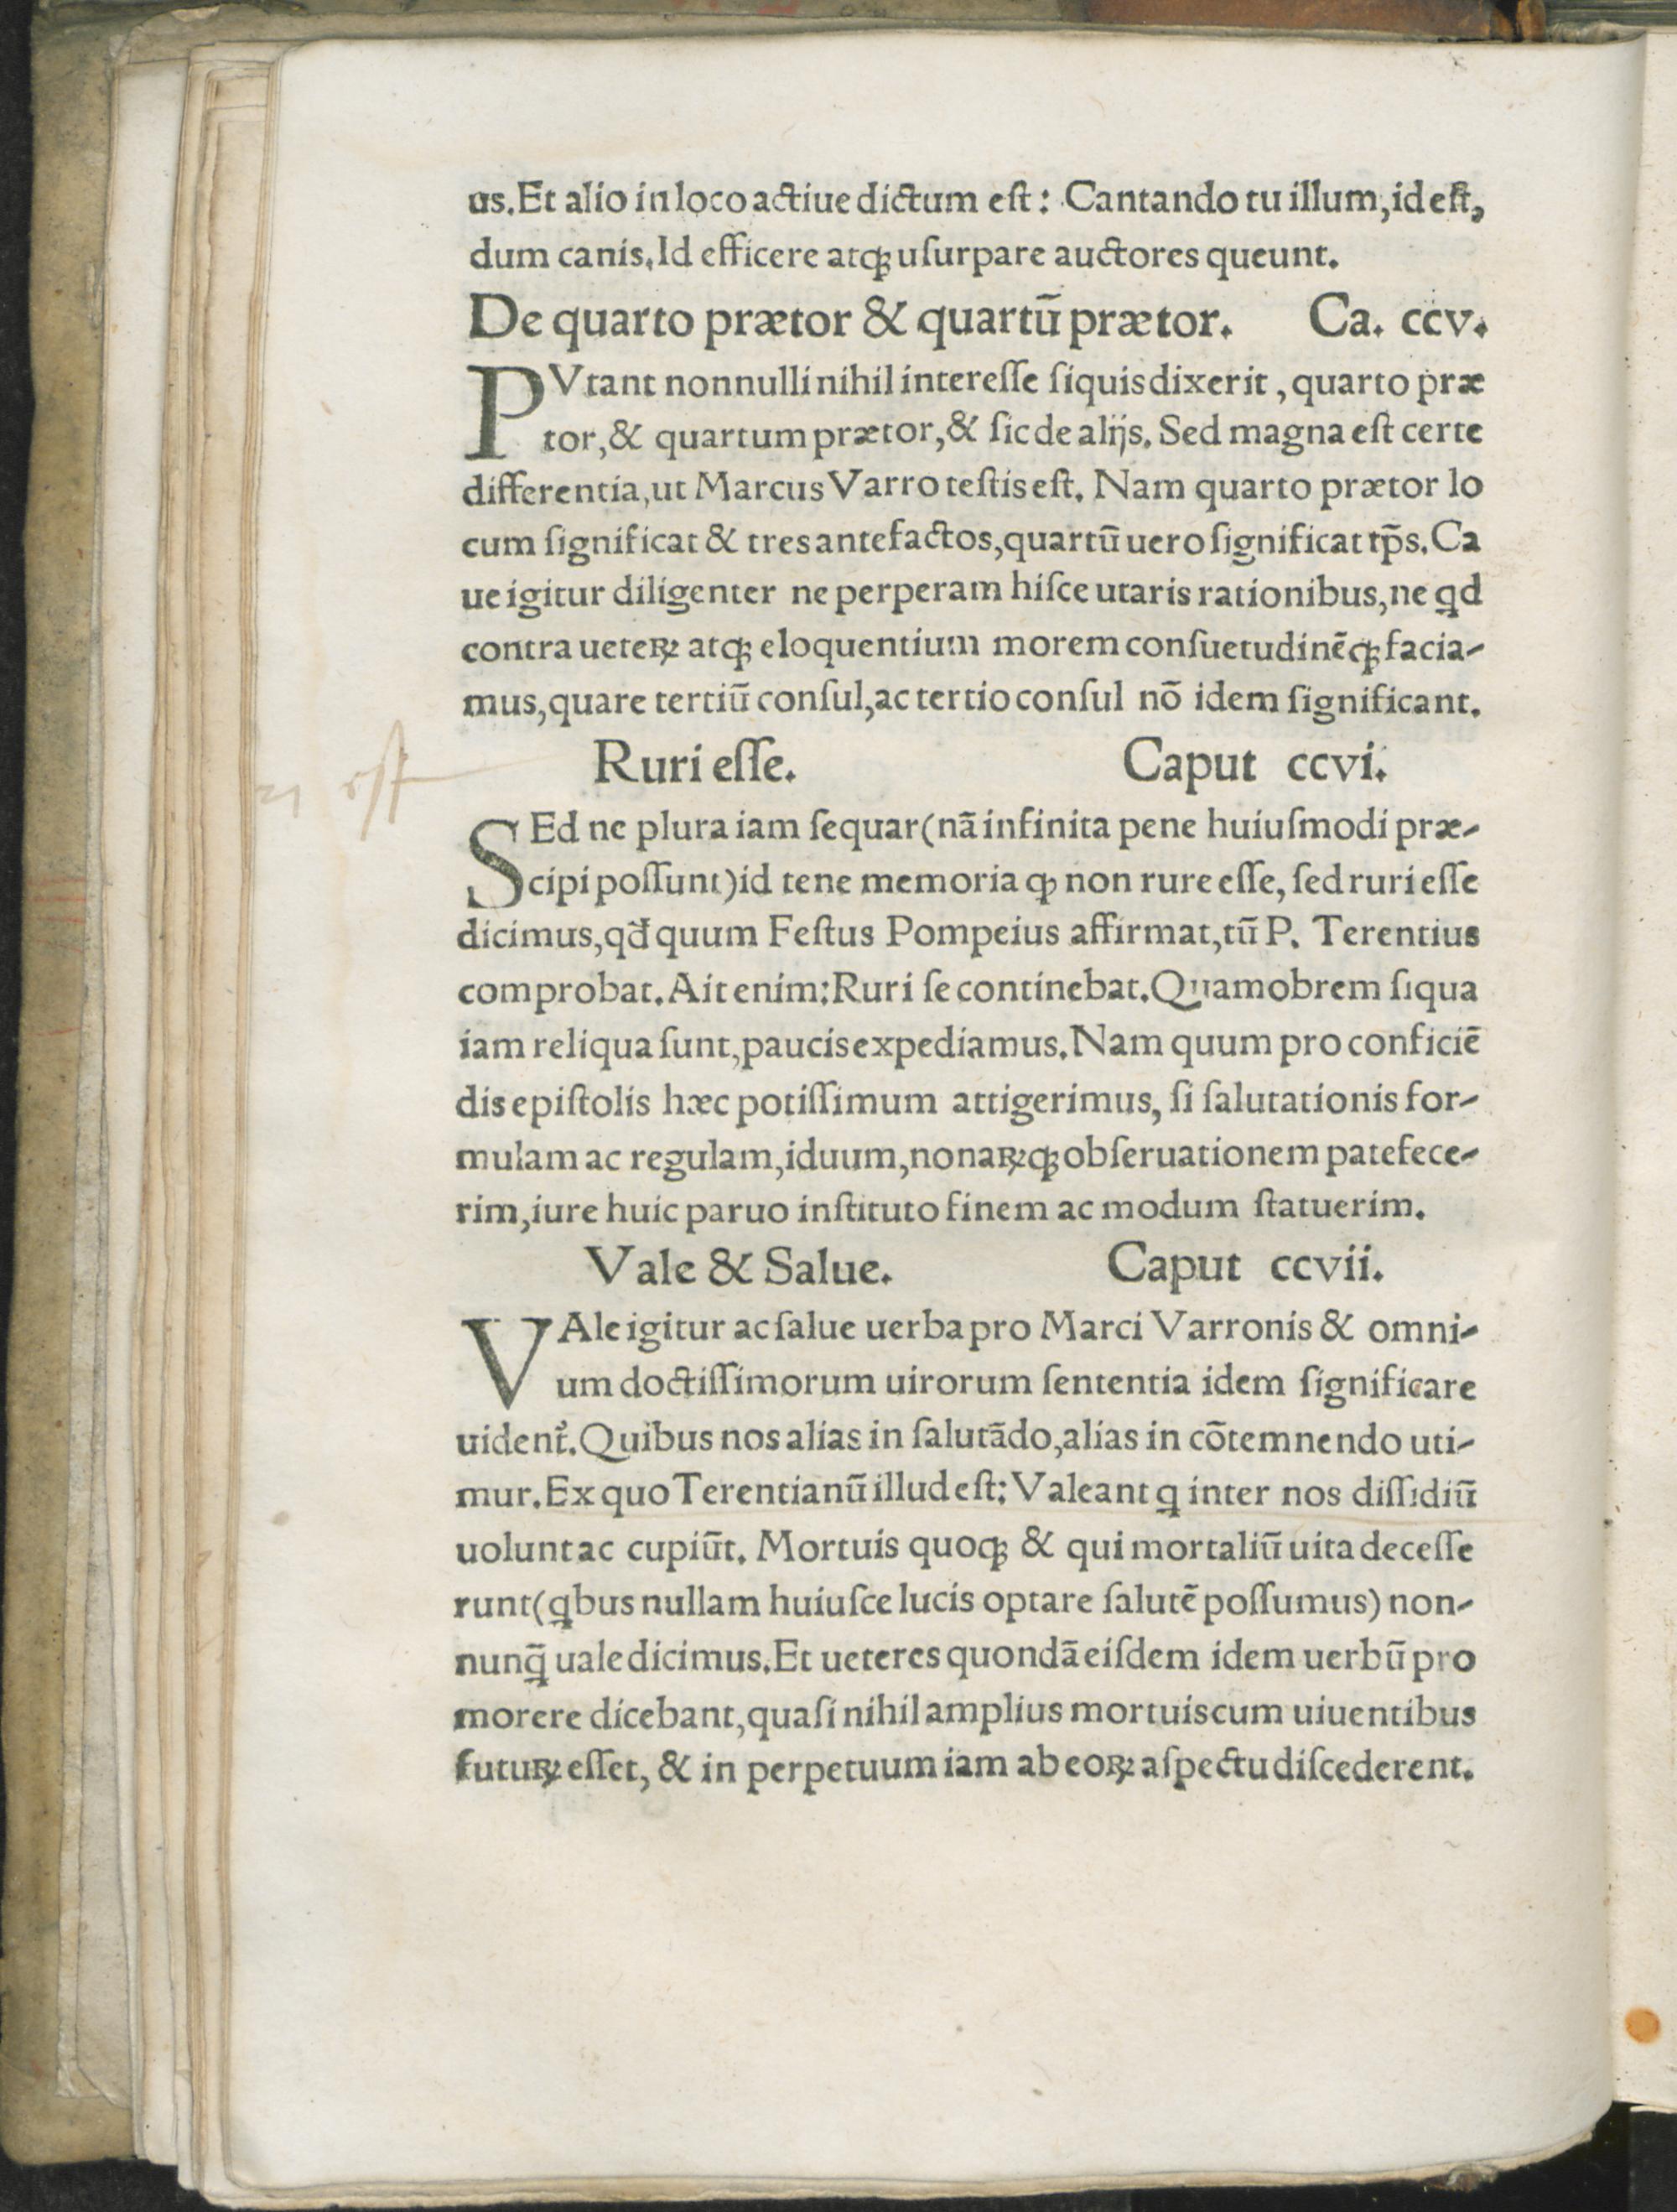 us.Et alio in loco actiue dictum eſt: Cantando tu illum,id eſt,
dum canis.Id efficere atqꝫ uſurpare auctores queunt.
De quarto prætor & quartū prætor. Ca. ccv.
PVtant nonnulli nihil intereſſe ſiquis dixerit, quarto præ
tor,& quartum prætor,& ſic de alijs. Sed magna eſt certe
differentia,ut Marcus Varro teſtis eſt. Nam quarto prætor lo
cum ſignificat & tres ante factos,quartū uero ſignificat tp̄s.Ca
ue igitur diligenter ne perperam hiſce utaris rationibus,ne qd
contra ueteꝝ atqꝫ eloquentium morem conſuetudinēqꝫ facia-
mus,quare tertiū conſul,ac tertio conſul nō idem ſignificant.
Ruri eſſe. Caput ccvi.
SEd ne plura iam ſequar(nā infinita pene huiuſmodi præ-
cipi poſſunt)id tene memoria ꝙ non rure eſſe, ſed ruri eſſe
dicimus,qđ quum Feſtus Pompeius affirmat,tū P. Terentius
comprobat.Ait enim:Ruri ſe continebat.Quamobrem ſiqua
iam reliqua ſunt,paucis expediamus.Nam quum pro conficiē
dis epiſtolis hæc potiſſimum attigerimus, ſi ſalutationis for-
mulam ac regulam,iduum,nonaꝝqꝫ obſeruationem patefece-
rim,iure huic paruo inſtituto finem ac modum ſtatuerim.
Vale & Salue. Caput ccvii.
VAle igitur ac ſalue uerba pro Marci Varronis & omni-
um doctiſſimorum uirorum ſententia idem ſignificare
uident᷑.Quibus nos alias in ſalutādo,alias in cōtemnendo uti-
mur.Ex quo Terentianū illud eſt:Valeant ꝗ inter nos diſſidiū
uolunt ac cupiūt. Mortuis quoqꝫ & qui mortaliū uita deceſſe
runt(ꝗbus nullam huiuſce lucis optare ſalutē poſſumus) non-
nunꝗ̄ uale dicimus.Et ueteres quondā eiſdem idem uerbū pro
morere dicebant,quaſi nihil amplius mortuis cum uiuentibus
futuꝝ eſſet, & in perpetuum iam ab eoꝝ aſpectu diſcederent.